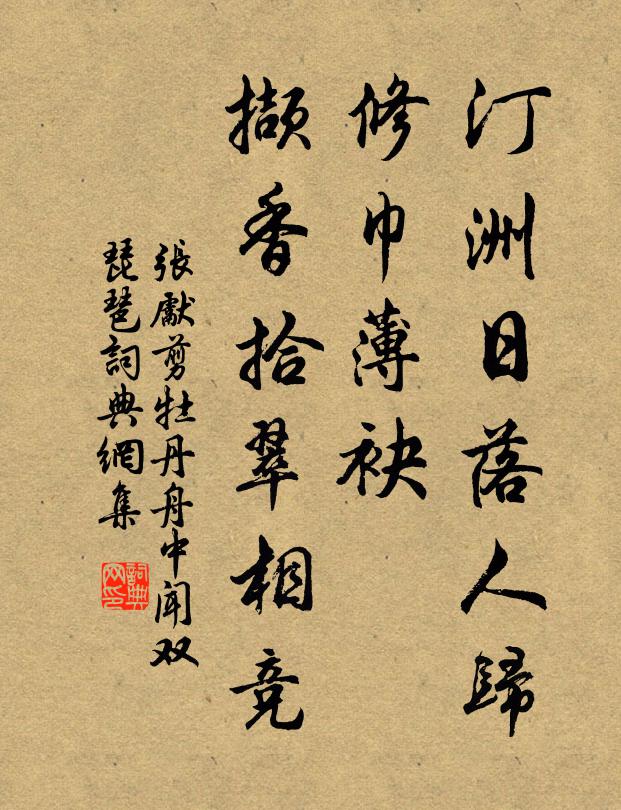 汀洲日落人歸
修巾薄袂
擷香拾翠相競
張獻剪牡丹舟中聞双
琵琶詞典網集
詞典
网印